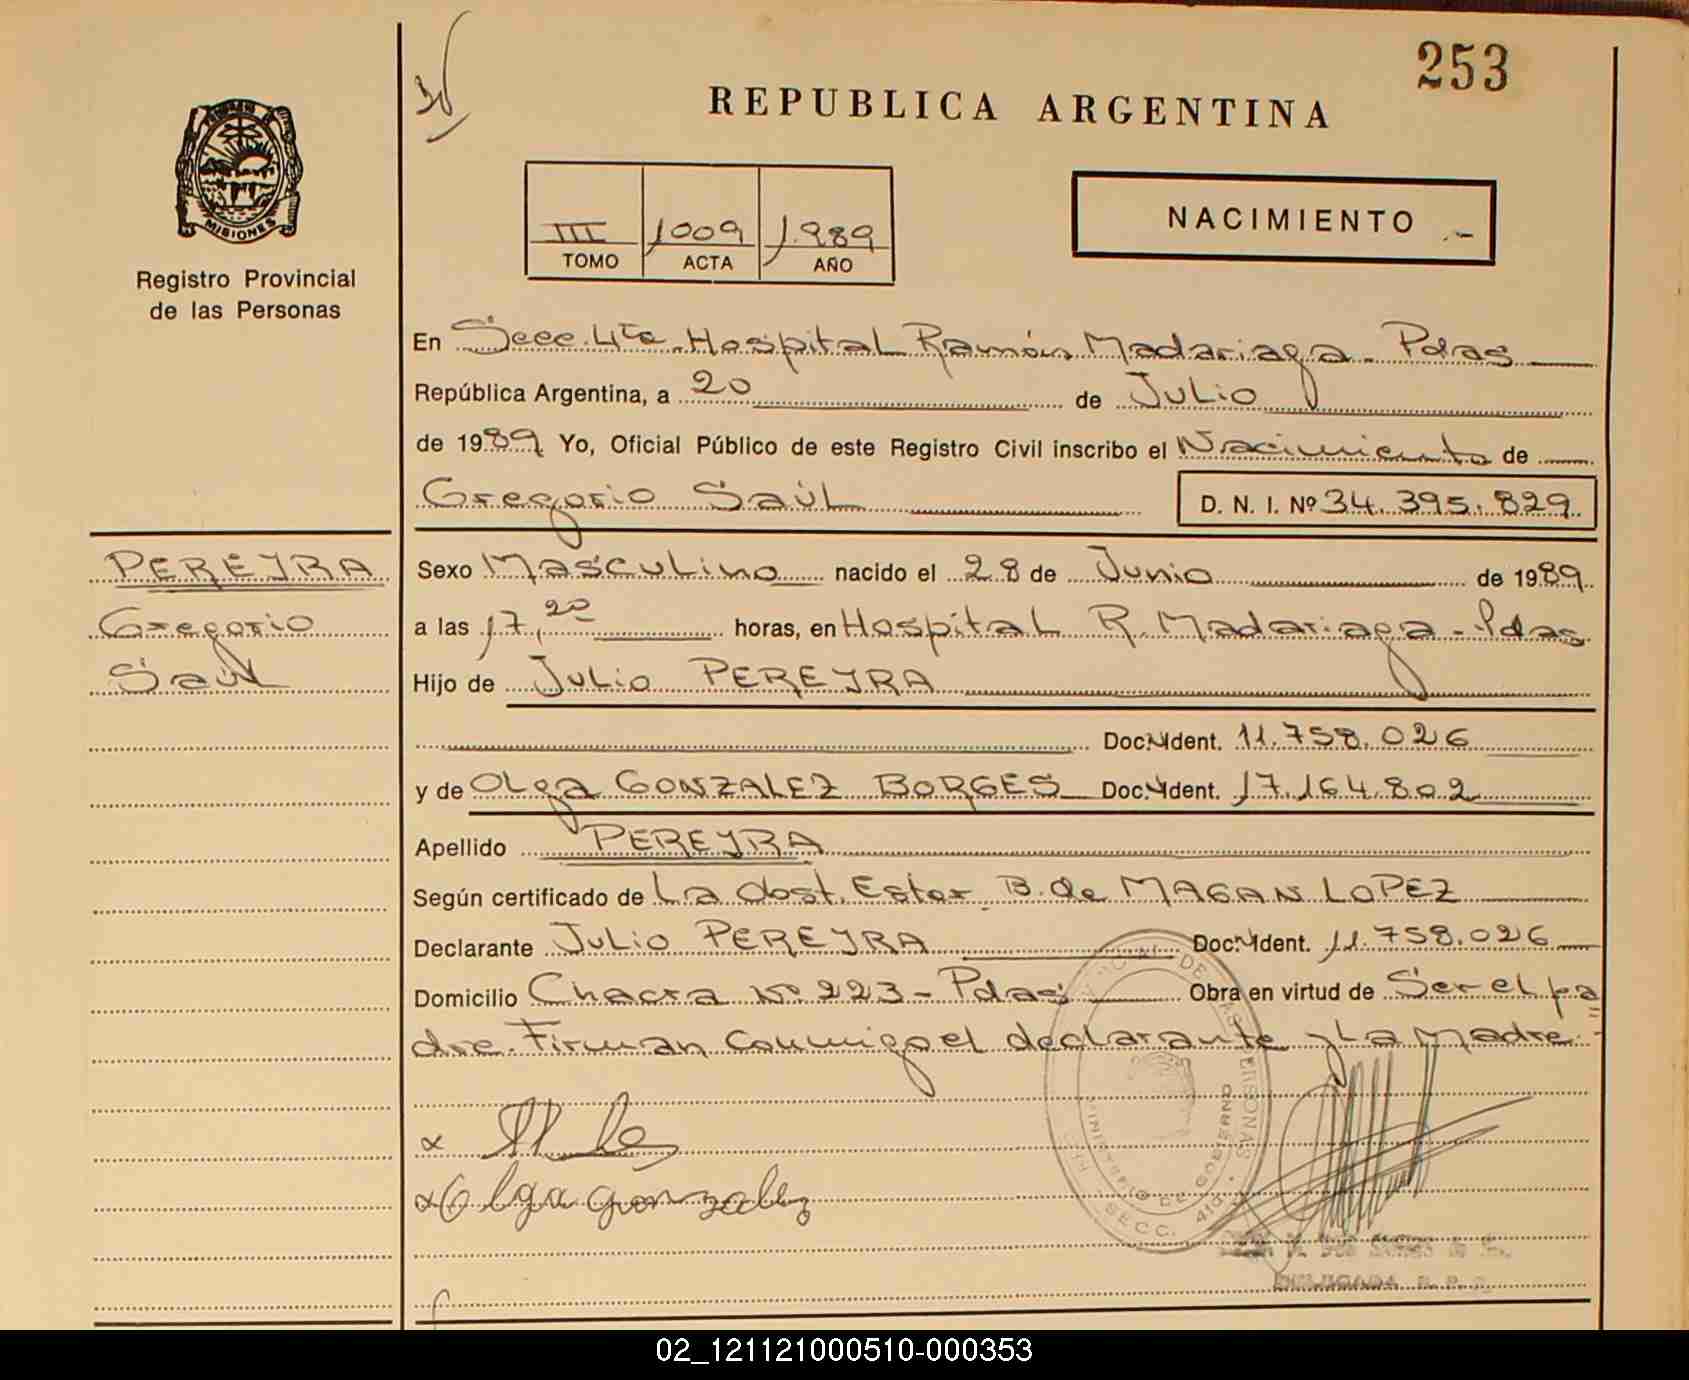 253
REPUBLICA ARGENTINA
MISIONES
Registro Provincial
de las Personas
III 1009 1.989
TOMO ACTA AÑO
NACIMIENTO .-
En Secc. 4ta. Hospital Ramón Madariaga - Pdas
República Argentina, a 20 de Julio
de 1989 Yo, Oficial Público de este Registro Civil inscribo el Nacimiento de
Gregorio Saúl D. N. I. Nº 34.395.829
PEREYRA
Gregorio
Saúl
Sexo Masculino nacido el 28 de Junio de 1989
a las 17,20 horas, en Hospital R. Madariaga - Pdas
Hijo de Julio PEREYRA
Doc. Ident. 11.758.026
y de Olga GONZALEZ BORGES Doc. Ident. 17.164.802
Apellido PEREYRA
Según certificado de La Obst. Ester B. de MAGAN LOPEZ
Declarante JULIO PEREYRA Doc. Ident. 11.758.026
Domicilio Chacra Nº 223 - Pdas Obra en virtud de Ser el pa
dre. Firman conmigo el declarante y La Madre.
x
x Olga gonzalez
DE LAS PERSONAS
MINISTERIO DE GOBIERNO
SECC. 4ta
DELEGADA R. P.
02_121121000510-000353